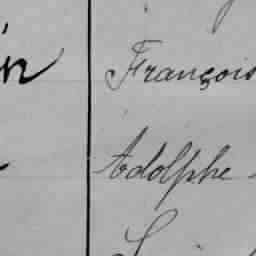 François
Adolphe